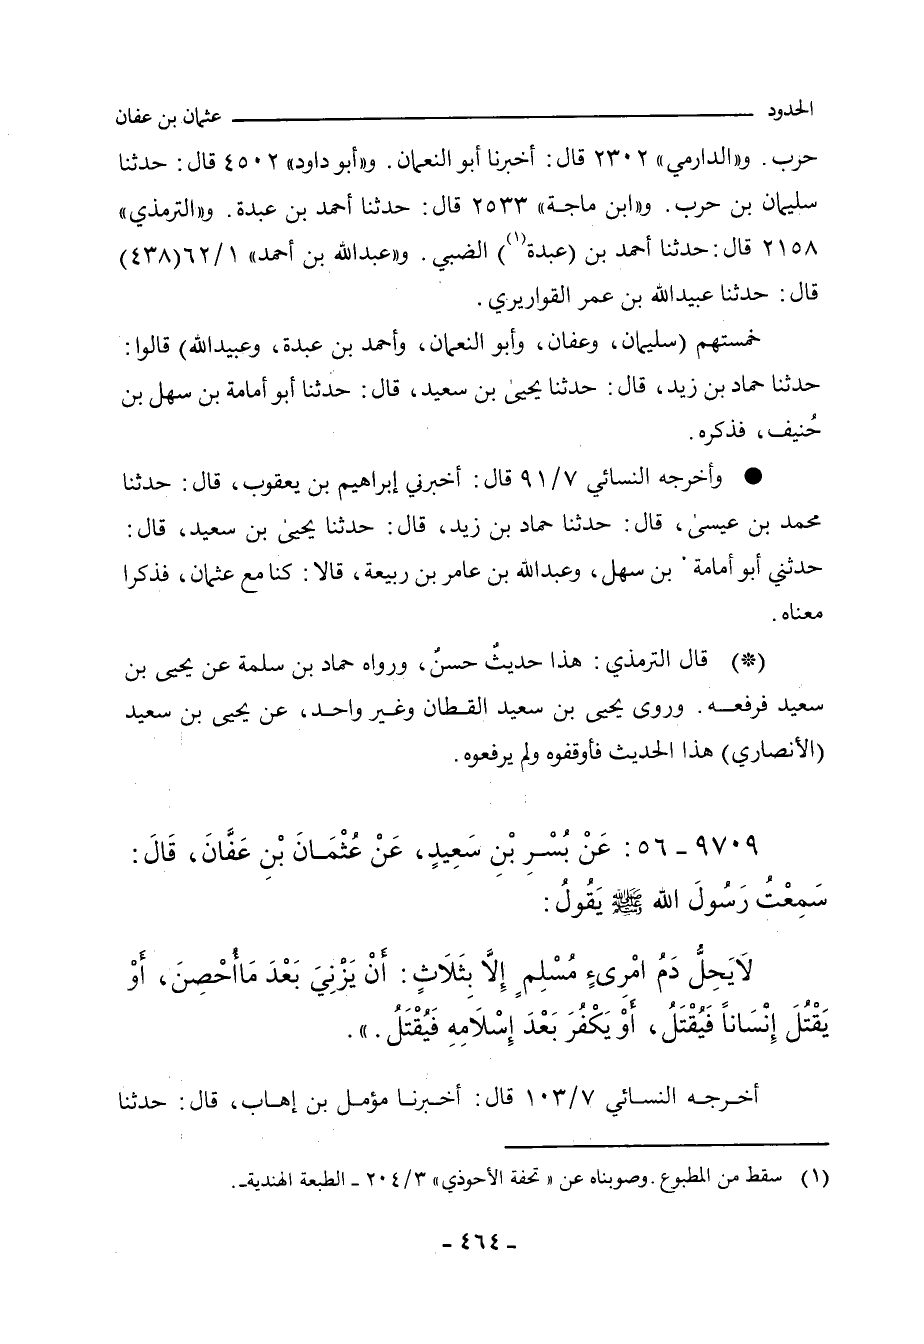 الحدود ــــــــ عثمان بن عفان
حرب. و«الدارمي» ٢٣٠٢ قال: أخبرنا أبو النعمان. و«أبو داود» ٤٥٠٢ قال: حدثنا
سليمان بن حرب. و«ابن ماجة» ٢٥٣٣ قال: حدثنا أحمد بن عبدة. و«الترمذي»
٢١٥٨ قال: حدثنا أحمد بن (عبدة(١)) الضبي. و«عبدالله بن أحمد» ٦٢/١(٤٣٨)
قال: حدثنا عبيدالله بن عمر القواريري.
خمستهم (سليمان، وعفان، وأبو النعمان، وأحمد بن عبدة، وعبيدالله) قالوا:
حدثنا حماد بن زيد، قال: حدثنا يحيىٰ بن سعيد، قال: حدثنا أبو أمامة بن سهل بن
حُنيف، فذكره.
● وأخرجه النسائي ٩١/٧ قال: أخبرني إبراهيم بن يعقوب، قال: حدثنا
محمد بن عيسىٰ، قال: حدثنا حماد بن زيد، قال: حدثنا يحيىٰ بن سعيد، قال:
حدثني أبو أمامة بن سهل، وعبدالله بن عامر بن ربيعة، قالا: كنا مع عثمان، فذكرا
معناه.
(*) قال الترمذي: هذا حديثٌ حسنٌ، ورواه حماد بن سلمة عن يحيى بن
سعيد فرفعـه. وروى يحيى بن سعيد القـطان وغـير واحـد، عن يحيى بن سعيد
(الأنصاري) هذا الحديث فأوقفوه ولم يرفعوه.
٩٧٠٩ ـ ٥٦: عَنْ بُسْـرِ بْنِ سَعِيدٍ، عَنْ عُثْمَـانَ بْنِ عَفَّانَ، قَالَ:
سَمِعْتُ رَسُولَ الله ﷺ يَقُولُ:
لَايَحِلُّ دَمُ امْرِىءٍ مُسْلِمٍ إِلَّا بِثَلَاثٍ: أَنْ يَزْنِيَ بَعْدَ مَاأُحْصِنَ، أَوْ
يَقْتُلَ إِنْسَاناً فَيُقْتَلُ، أَوْ يَكْفُرَ بَعْدَ إِسْلَامِهِ فَيُقْتَلُ.».
أخـرجـه النسـائي ١٠٣/٧ قال: أخـبرنـا مؤمـل بن إهـاب، قال: حدثنا
(١) سقط من المطبوع. وصوبناه عن «تحفة الأحوذي» ٢٠٤/٣ ـ الطبعة الهندية ـ.
ـ ٤٦٤ ـ